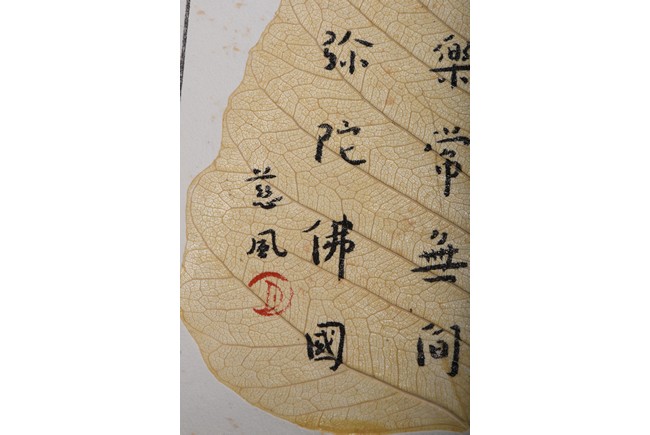 樂常無间
弥陀佛國
慈風